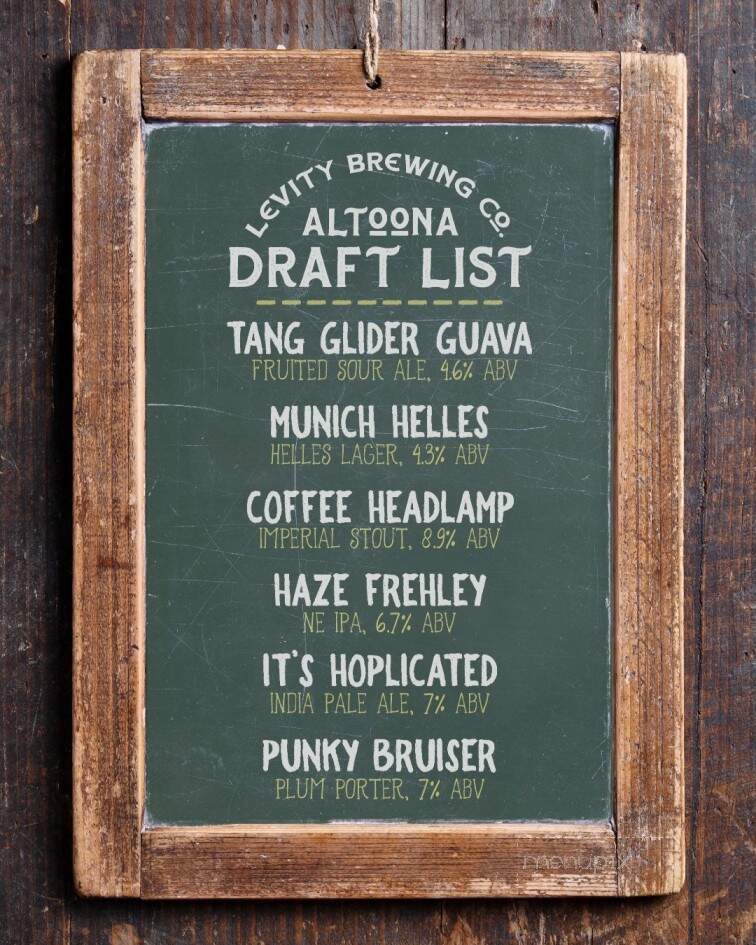 LEVITY BREWING CO.
ALTOONA
DRAFT LIST
TANG GLIDER GUAVA
FRUITED SOUR ALE, 4.6% ABV
MUNICH HELLES
HELLES LAGER, 4.3% ABV
COFFEE HEADLAMP
IMPERIAL STOUT, 8.9% ABV
HAZE FREHLEY
NE IPA, 6.7% ABV
IT'S HOPLICATED
INDIA PALE ALE, 7% ABV
PUNKY BRUISER
PLUM PORTER, 7% ABV